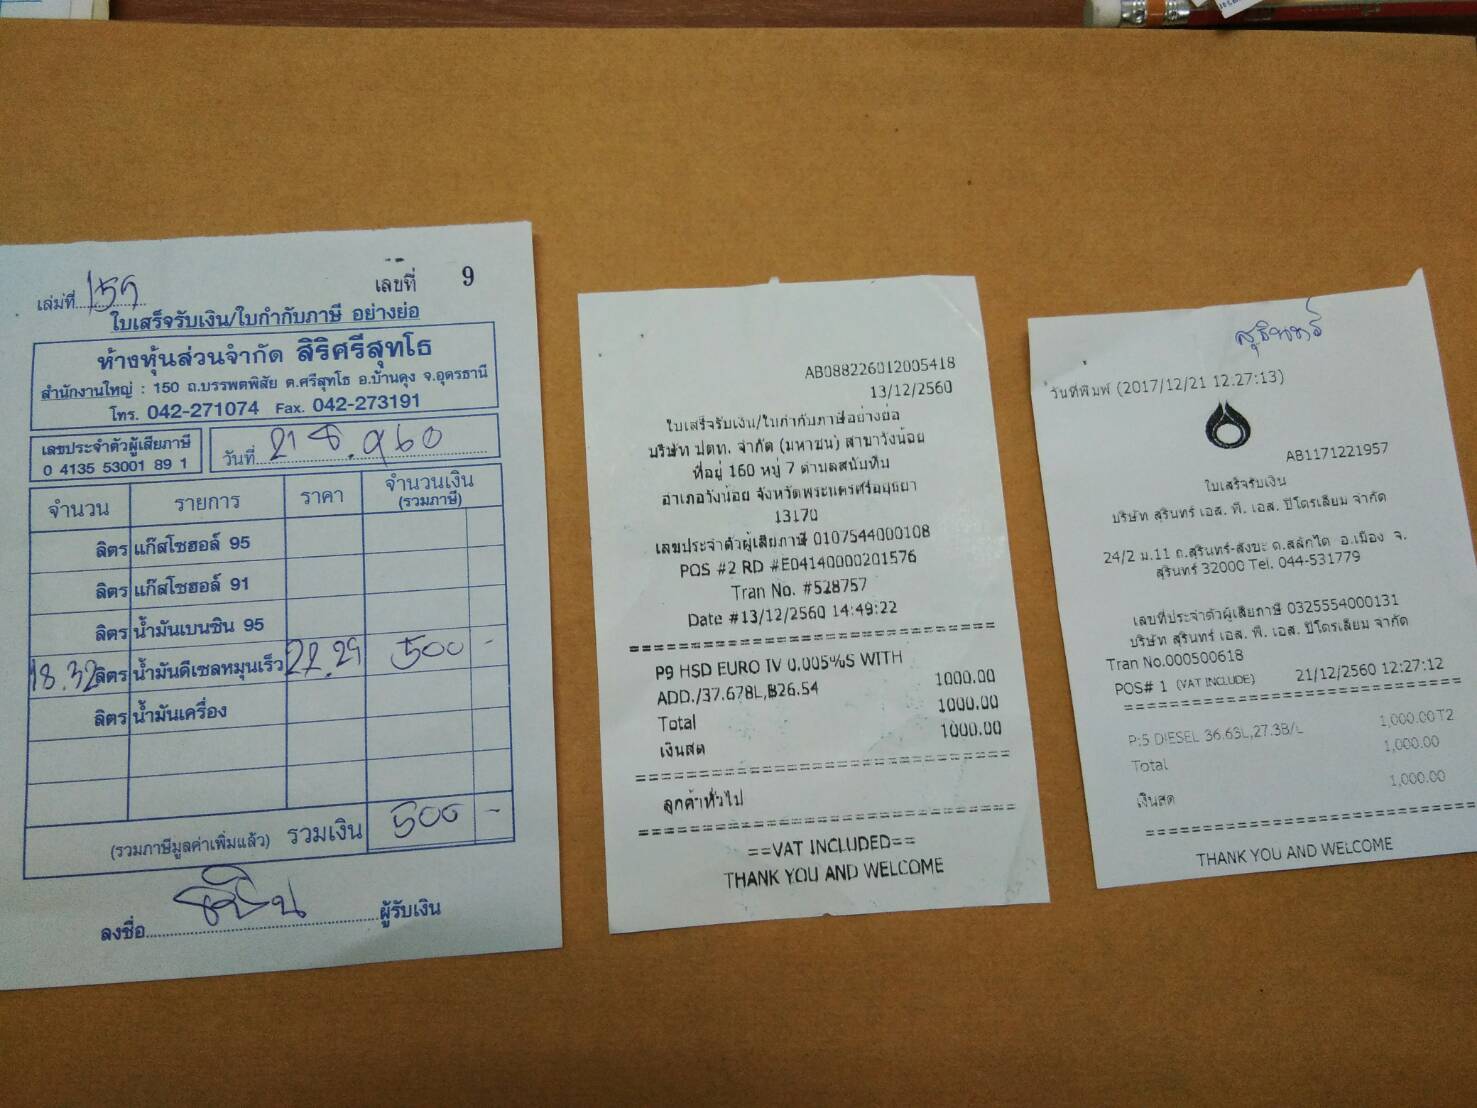 เล่มที่ 159 เลขที่ 9
ใบเสร็จรับเงิน/ใบกำกับภาษี อย่างย่อ
ห้างหุ้นส่วนจำกัด สิริศรีสุทโธ
สำนักงานใหญ่ : 150 ถ.บรรพตพิสัย ต.ศรีสุทโธ อ.บ้านดุง จ.อุดรธานี
โทร. 042-271074 Fax. 042-273191
เลขประจำตัวผู้เสียภาษี
0 4135 53001 89 1
วันที่ 21 ธ.ค. 60
จำนวน รายการ ราคา จำนวนเงิน
(รวมภาษี)
ลิตร แก๊สโซฮอล์ 95
ลิตร แก๊สโซฮอล์ 91
ลิตร น้ำมันเบนซิน 95
18.32 ลิตร น้ำมันดีเซลหมุนเร็ว 27.29 500 -
ลิตร น้ำมันเครื่อง
(รวมภาษีมูลค่าเพิ่มแล้ว) รวมเงิน 500 -
ลงชื่อ ผู้รับเงิน
AB088226012005418
13/12/2560
ใบเสร็จรับเงิน/ใบกำกับภาษีอย่างย่อ
บริษัท ปตท. จำกัด (มหาชน) สาขาวังน้อย
ที่อยู่ 160 หมู่ 7 ตำบลสนับทึบ
อำเภอวังน้อย จังหวัดพระนครศรีอยุธยา
13170
เลขประจำตัวผู้เสียภาษี 0107544000108
POS #2 RD #E04140000201576
Tran No. #528757
Date #13/12/2560 14:49:22
P9 HSD EURO IV 0.005%S WITH
ADD./37.678L,฿26.54 1000.00
Total 1000.00
เงินสด 1000.00
ลูกค้าทั่วไป
==VAT INCLUDED==
THANK YOU AND WELCOME
สุรินทร์
วันที่พิมพ์ (2017/12/21 12:27:13)
AB1171221957
ใบเสร็จรับเงิน
บริษัท สุรินทร์ เอส. พี. เอส. ปิโตรเลียม จำกัด
24/2 ม.11 ถ.สุรินทร์-สังขะ ต.สลักได อ.เมือง จ.
สุรินทร์ 32000 Tel. 044-531779
เลขที่ประจำตัวผู้เสียภาษี 0325554000131
บริษัท สุรินทร์ เอส. พี. เอส. ปิโตรเลียม จำกัด
Tran No.000500618
POS# 1 (VAT INCLUDE) 21/12/2560 12:27:12
P:5 DIESEL 36.63L,27.3B/L 1,000.00T2
Total 1,000.00
เงินสด 1,000.00
THANK YOU AND WELCOME